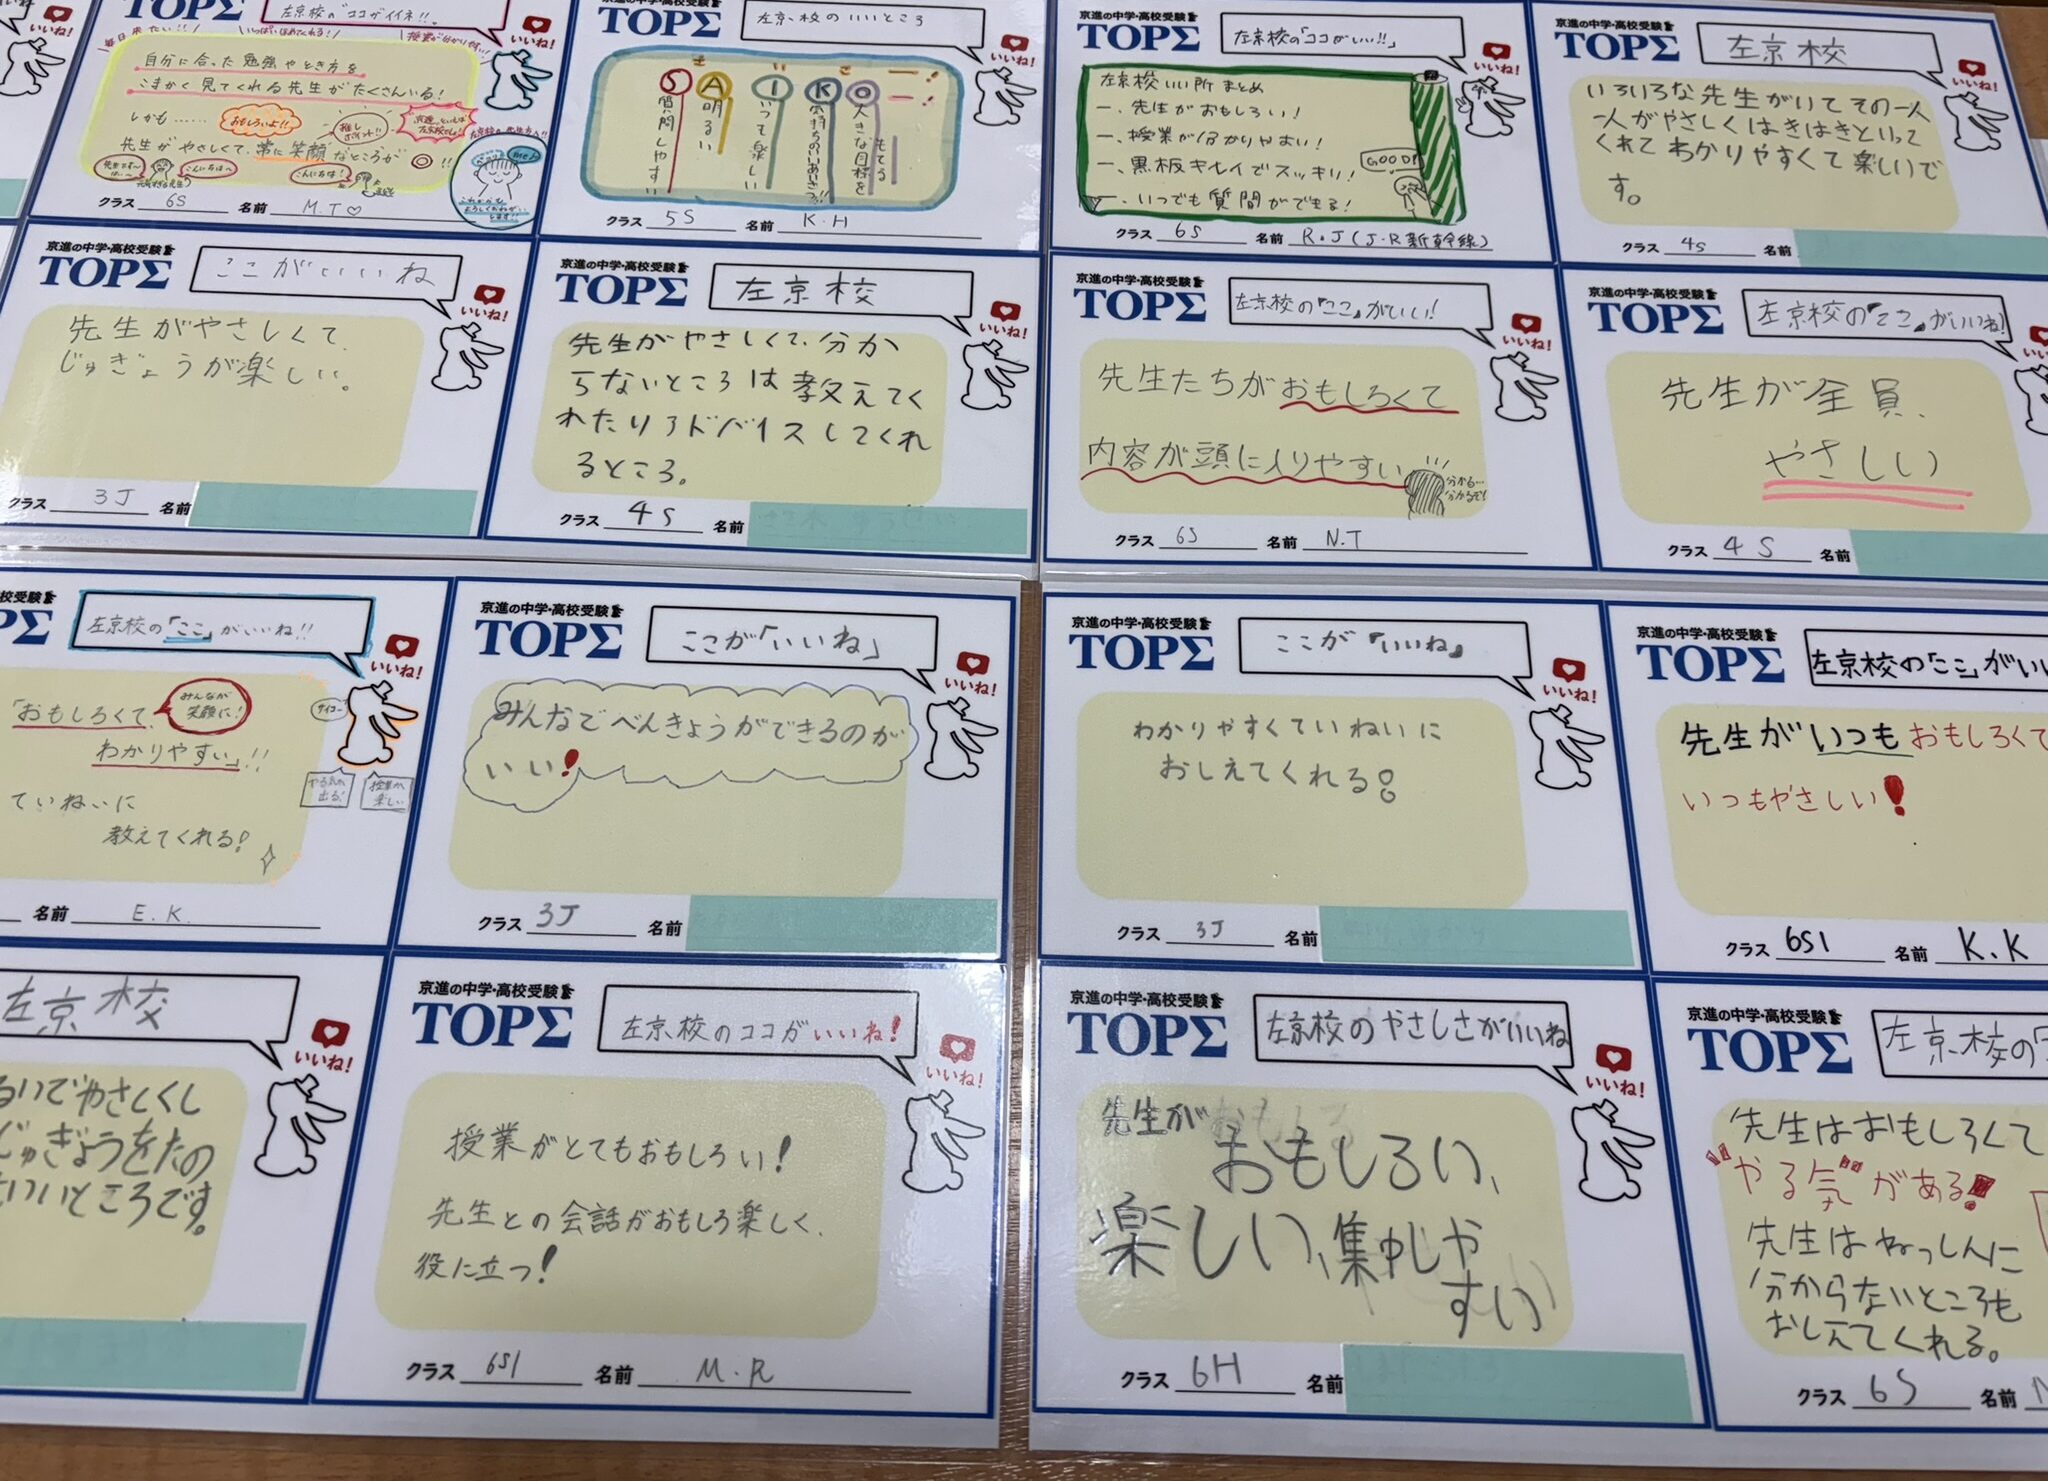 TOPΣ
左京校の"ココがイイネ"!!
いいね!
毎日来たい!!
いっぱいほめてくれる!
自分に合った勉強やとき方を
こまかく見てくれる先生がたくさんいる!
しかも……
おもしろいよ!!
先生がやさしくて、常に笑顔なところが◎!!
こんにちは!
クラス 6S 名前 M.T♡
京進の中学・高校受験
TOPΣ
左京校のいいところ
いいね!
S 質問しやすい
A 明るい
I いつも楽しい
K 気持ちのいいあいさつ!!
O 大きな目標をもてる
クラス 5S 名前 K.H
京進の中学・高校受験
TOPΣ
左京校の「ココがいい!!」
いいね!
左京校いい所まとめ
一、先生がおもしろい!
一、授業が分かりやすい!
一、黒板キレイでスッキリ!
一、いつでも質問ができる!
GOOD!
クラス 6S 名前 R.J(J.R新幹線)
京進の中学・高校受験
TOPΣ
左京校
いいね!
いろいろな先生がいてその一人
一人がやさしくはきはきといって
くれてわかりやすくて楽しいで
す。
クラス 4S 名前
京進の中学・高校受験
TOPΣ
ここがいいね
いいね!
先生がやさしくて、
じゅぎょうが楽しい。
クラス 3J 名前
京進の中学・高校受験
TOPΣ
左京校
いいね!
先生がやさしくて、分か
らないところは教えてく
れたりアドバイスしてくれ
るところ。
クラス 4S 名前
京進の中学・高校受験
TOPΣ
左京校の「ここ」がいい!
いいね!
先生たちがおもしろくて
内容が頭に入りやすい
分かる…
分かるぞ!
クラス 6S 名前 N.T
京進の中学・高校受験
TOPΣ
左京校の「ここ」がいいね!
先生が全員、
やさしい
クラス 4S 名前
校受験
左京校の「ここ」がいいね!!
いいね!
「おもしろくて、
みんなが
笑顔に!
わかりやすい」!!
ていねいに
教えてくれる!
サイコー
やる気が
出る!
授業が
楽しい
名前 E.K.
京進の中学・高校受験
TOPΣ
ここが「いいね」
いいね!
みんなでべんきょうができるのが
いい!
クラス 3J 名前
京進の中学・高校受験
TOPΣ
ここが「いいね」
いいね!
わかりやすくていねいに
おしえてくれる!
クラス 3J 名前
京進の中学・高校受験
TOPΣ
左京校の「ここ」がいい
先生がいつもおもしろくて
いつもやさしい!
クラス 6S1 名前 K.K
左京校
いいね!
るいでやさしくし
じゅぎょうをたの
いいところです。
京進の中学・高校受験
TOPΣ
左京校のココがいいね!
いいね!
授業がとてもおもしろい!
先生との会話がおもしろ楽しく、
役に立つ!
クラス 6S1 名前 M.R
京進の中学・高校受験
TOPΣ
左京校のやさしさがいいね
いいね!
先生が
おもしろい、
楽しい、集中しや
すい
クラス 6H 名前
京進の中学・高校受験
TOPΣ
左京校の
先生はおもしろくて
"やる気"がある!!
先生はねっしんに
分からないところも
おしえてくれる。
クラス 6S 名前